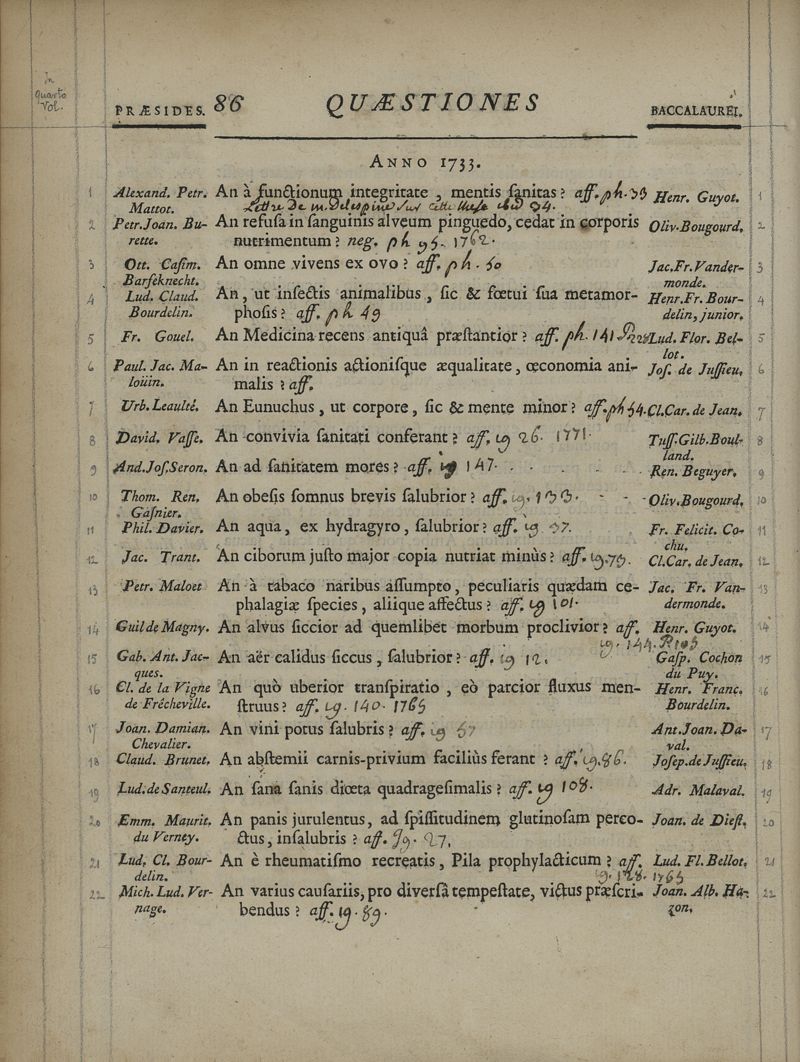 In
quarto
Vol.
PRÆSIDES. 86 QUÆSTIONES BACCALAUREI.
ANNO 1733.
1 Alexand. Petr. An à functionum integritate , mentis ſanitas ? aff. ph. Henr. Guyot. 1
Mattot.
2 Petr. Joan. Bu- An refuſa in ſanguinis alveum pinguedo, cedat in corporis Oliv. Bougourd. 2
rette. nutrimentum ? neg. ph 95. 1762.
3 Ott. Caſim. An omne vivens ex ovo ? aff. ph. 50 Jac. Fr. Vander- 3
Barfeknecht. monde.
4 Lud. Claud. An , ut inſectis animalibus , ſic & fœtui ſua metamor- Henr. Fr. Bour- 4
Bourdelin. phoſis ? aff. ph 49 delin, junior.
5 Fr. Gouel. An Medicina recens antiquâ præſtantior ? aff. ph. 141 Lud. Flor. Bel- 5
lot.
6 Paul. Jac. Ma- An in reactionis actioniſque æqualitate , œconomia ani- Joſ. de Juſſieu. 6
loüin. malis ? aff.
7 Urb. Leaulté. An Eunuchus , ut corpore , ſic & mente minor ? aff. ph 54. Cl. Car. de Jean. 7
8 David. Vaſſe. An convivia ſanitati conferant ? aff. 26. 1771. Tuſſ. Gilb. Boul- 8
land.
9 And. Joſ. Seron. An ad ſanitatem mores ? aff. 147. Ren. Beguyer. 9
10 Thom. Ren. An obeſis ſomnus brevis ſalubrior ? aff. Oliv. Bougourd. 10
Gaſnier.
11 Phil. Davier. An aqua , ex hydragyro , ſalubrior ? aff. 37. Fr. Felicit. Co- 11
chu.
12 Jac. Trant. An ciborum juſto major copia nutriat minùs ? aff. Cl. Car. de Jean. 12
13 Petr. Maloet An à tabaco naribus aſſumpto , peculiaris quædam ce- Jac. Fr. Van- 13
phalagiæ ſpecies , aliique affectus ? aff. 101. dermonde.
14 Guil de Magny. An alvus ſiccior ad quemlibet morbum proclivior ? aff. Henr. Guyot. 14
144.
15 Gab. Ant. Jac- An aër calidus ſiccus , ſalubrior ? aff. 12. Gaſp. Cochon 15
ques. du Puy.
16 Cl. de la Vigne An quò uberior tranſpiratio , eò parcior fluxus men- Henr. Franc. 16
de Frécheville. ſtruus ? aff. 140. 1765 Bourdelin.
17 Joan. Damian. An vini potus ſalubris ? aff. 57 Ant. Joan. Da- 17
Chevalier. val.
18 Claud. Brunet. An abſtemii carnis-privium faciliùs ferant ? aff. 86. Joſep. de Juſſieu. 18
19 Lud. de Santeul. An ſana ſanis diœta quadrageſimalis ? aff. 108. Adr. Malaval. 19
20 Emm. Maurit. An panis jurulentus, ad ſpiſſitudinem glutinoſam perco- Joan. de Dieſt. 20
du Verney. ctus, inſalubris ? aff. 27.
21 Lud. Cl. Bour- An è rheumatiſmo recreatis , Pila prophylacticum ? aff. Lud. Fl. Bellot. 21
delin. 128. 1765
22 Mich. Lud. Ver- An varius cauſariis, pro diverſâ tempeſtate, victus præſcri- Joan. Alb. Ha- 22
nage. bendus ? aff. 89. zon.